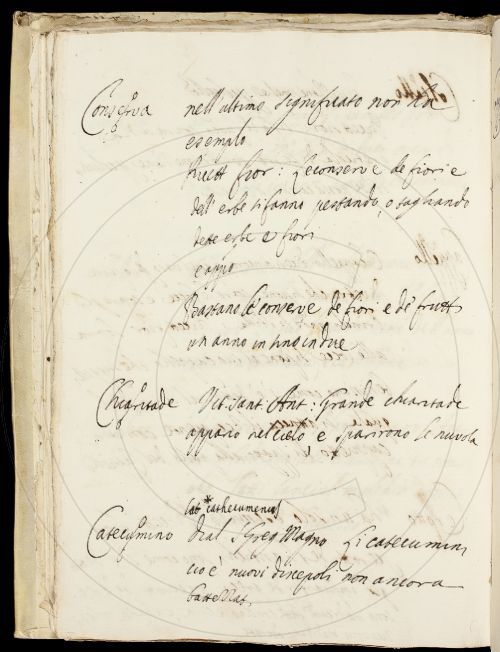 Conserva nell'ultimo significato non ha
esempio
Ricett fior: Le conserve de fiori e
dell'erbe si fanno pestando, o tagliando
dette erbe e fiori
e appo
Bastano le conserve de' fiori e de' frutti
un anno in fino in due
Chiaritade Vit. Sant: Ant: Grande chiaritade
appario nel cielo e sparirono le nuvola
lat * cathecumenus
Catecumino Dial S Greg Magno Li catecumini
cio è nuovi discepoli non ancora